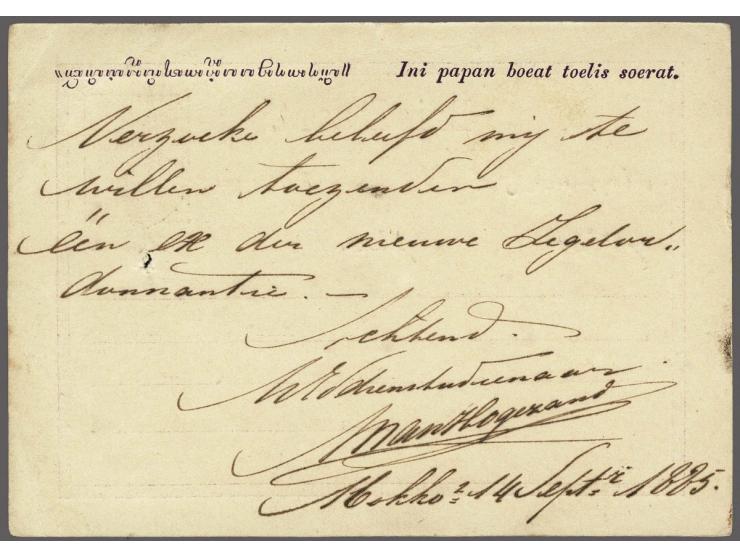 Ini papan boeat toelis soerat.
Verzoeke beleefd mij te
willen toezenden
één ex der nieuwe Zegelor„
donnantie. —
Achtend.
UEd dienstwdienaar.
Mokko² 14 Septbr 1885.